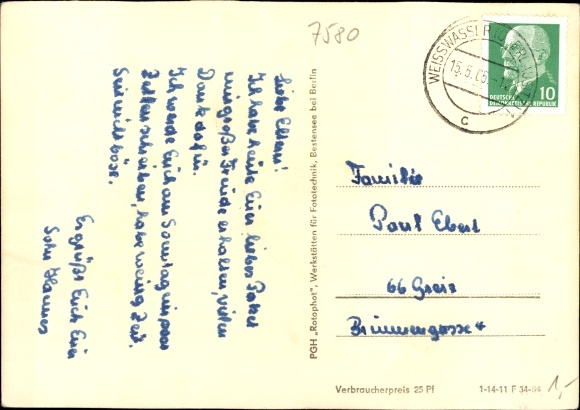 7580
Liebe Eltern!
Ich habe heute Euer liebes Paket
mit großer Freude erhalten, vielen
Dank dafür.
Ich werde Euch am Sonntag ein paar
Zeilen schreiben, habe wenig Zeit.
Seid nicht böse.
Es grüßt Euch Euer
Sohn Hannes
PGH „Rotophot", Werkstätten für Fototechnik, Bestensee bei Berlin
WEISSWASSER
15.5.65
c
DEUTSCHE
DEMOKRATISCHE REPUBLIK
10
Familie
Paul Ebert
66 Greiz
Brunnengasse 4
Verbraucherpreis 25 Pf
1-14-11 F 34-64
1,-